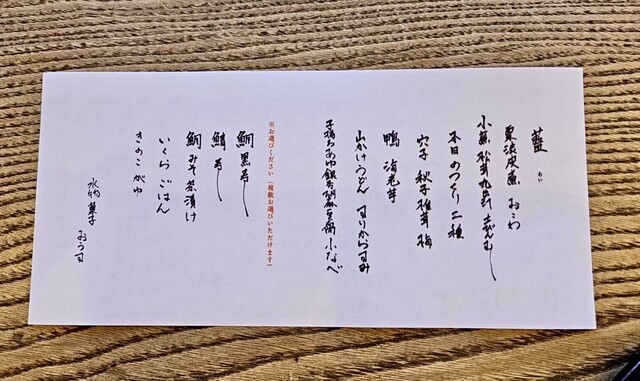 藍
あい
栗渋皮煮 おこわ
小蕪 松茸 丸 土びんむし
本日のつくり 二種
穴子 秋子椎茸 梅
鴨 海老芋
山かけうどん すりからすみ
子持ちあゆ 銀杏 胡麻豆腐 小なべ
※お選びください(複数お選びいただけます)
鯛黒寿し
鯖寿し
鯛みそ茶漬け
いくらごはん
きのこがゆ
水物 菓子 おうす